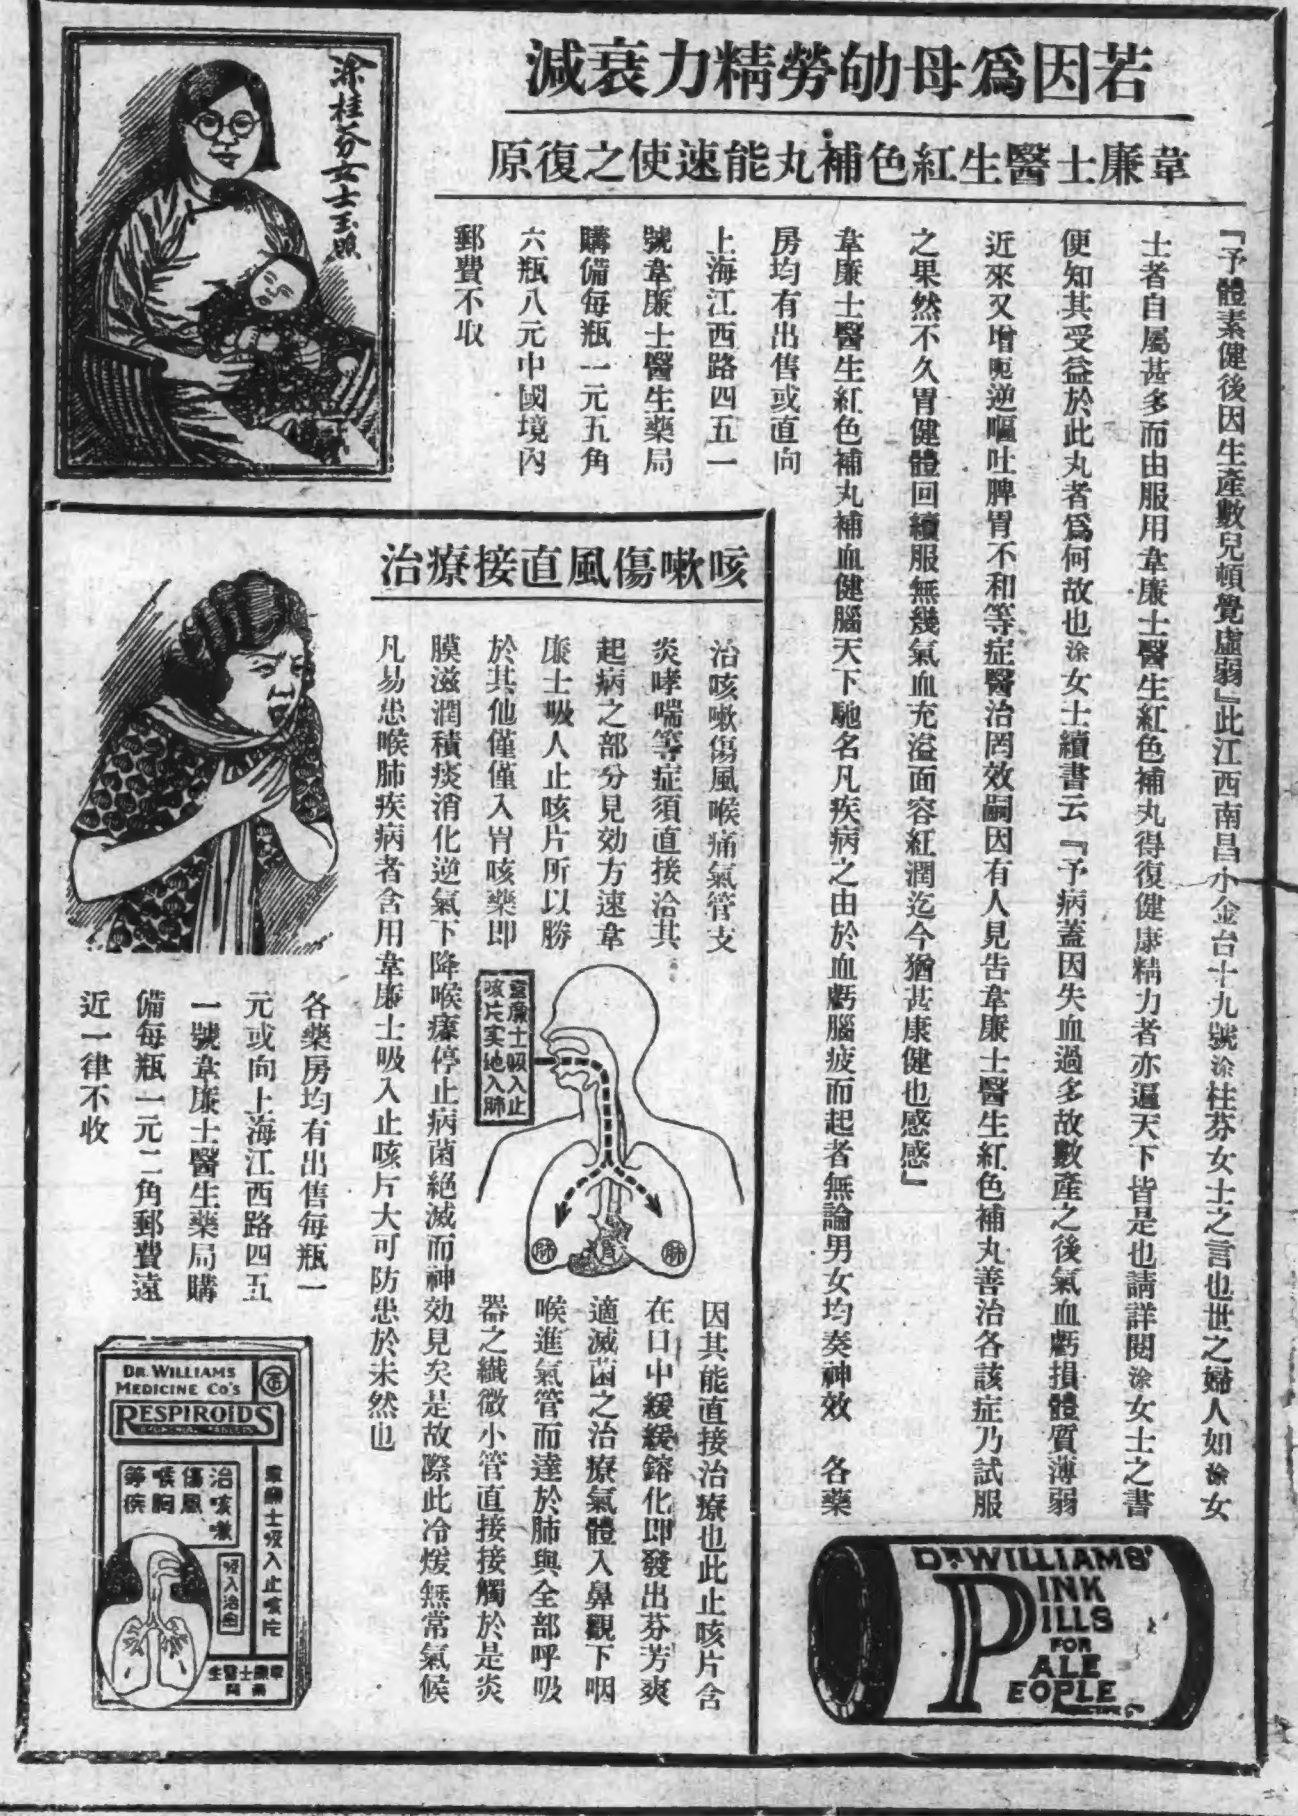 若因爲母劬勞精力衰減
韋廉士醫生紅色補丸能速使之復原
『予體素健後因生產數兒頓覺虛弱』此江西南昌小金台十九號涂桂芬女士之言也世之婦人如涂女
士者自屬甚多而由服用韋廉士醫生紅色補丸得復健康精力者亦遍天下皆是也請詳閱涂女士之書
便知其受益於此丸者爲何故也涂女士續書云『予病蓋因失血過多故數產之後氣血虧損體質薄弱
近來又增呃逆嘔吐脾胃不和等症醫治罔效嗣因有人見告韋廉士醫生紅色補丸善治各該症乃試服
之果然不久胃健體回續服無幾氣血充溢面容紅潤迄今猶甚康健也感感』
韋廉士醫生紅色補丸補血健腦天下馳名凡疾病之由於血虧腦疲而起者無論男女均奏神效 各藥
房均有出售或直向
上海江西路四五一
號韋廉士醫生藥局
購備每瓶一元五角
六瓶八元中國境內
郵費不取
涂桂芬女士玉照
DR. WILLIAMS'
PINK
PILLS
FOR
PALE
PEOPLE
咳嗽傷風直接療治
治咳嗽傷風喉痛氣管支
炎哮喘等症須直接治其
起病之部分見效方速韋
廉士吸入止咳片所以勝
於其他僅僅入胃咳藥即
因其能直接治療也此止咳片含
在口中緩緩鎔化即發出芬芳爽
適滅菌之治療氣體入鼻觀下咽
喉進氣管而達於肺與全部呼吸
器之纖微小管直接接觸於是炎
膜滋潤積痰消化逆氣下降喉癢停止病菌絕滅而神効見矣是故際此冷煖無常氣候
凡易患喉肺疾病者含用韋廉士吸入止咳片大可防患於未然也
韋廉士吸入止
咳片实地入肺
肺
肺
各藥房均有出售每瓶一
元或向上海江西路四五
一號韋廉士醫生藥局購
備每瓶一元二角郵費遠
近一律不收
DR. WILLIAMS
MEDICINE CO'S
RESPIROIDS
治咳嗽
傷風
喉胸
等疾
吸入治
韋廉士吸入止咳片
韋廉士醫生
藥局